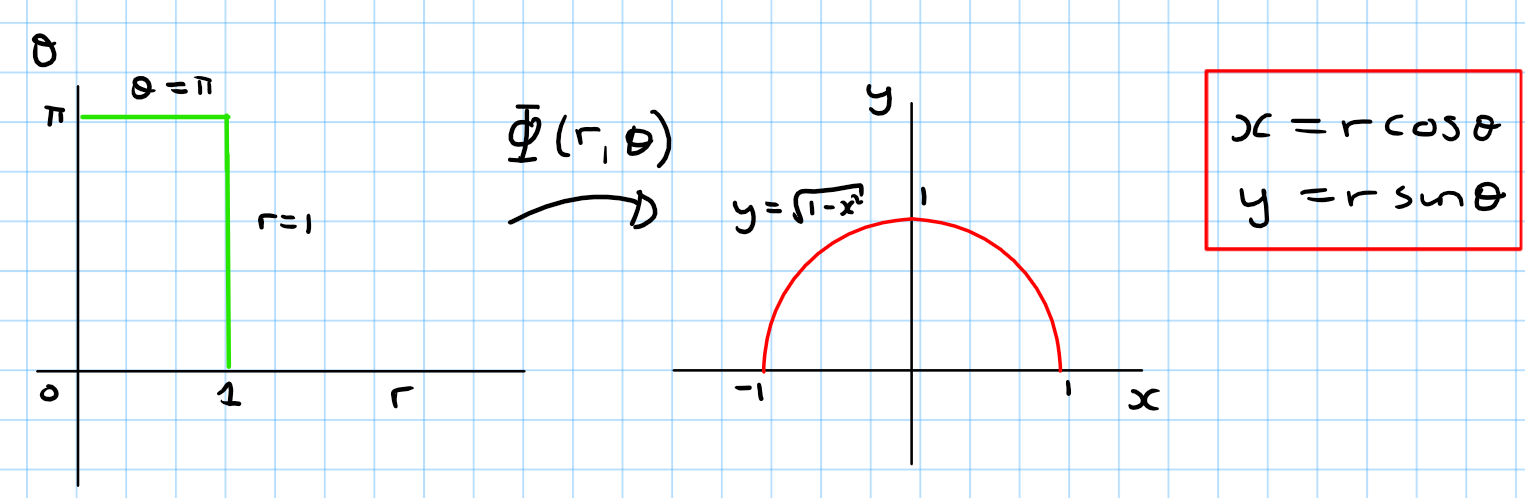 θ
θ = π
π
r=1
0
1
r
Φ(r, θ)
y
y = √1-x²
1
-1
1
x
x = r cosθ
y = r sinθ